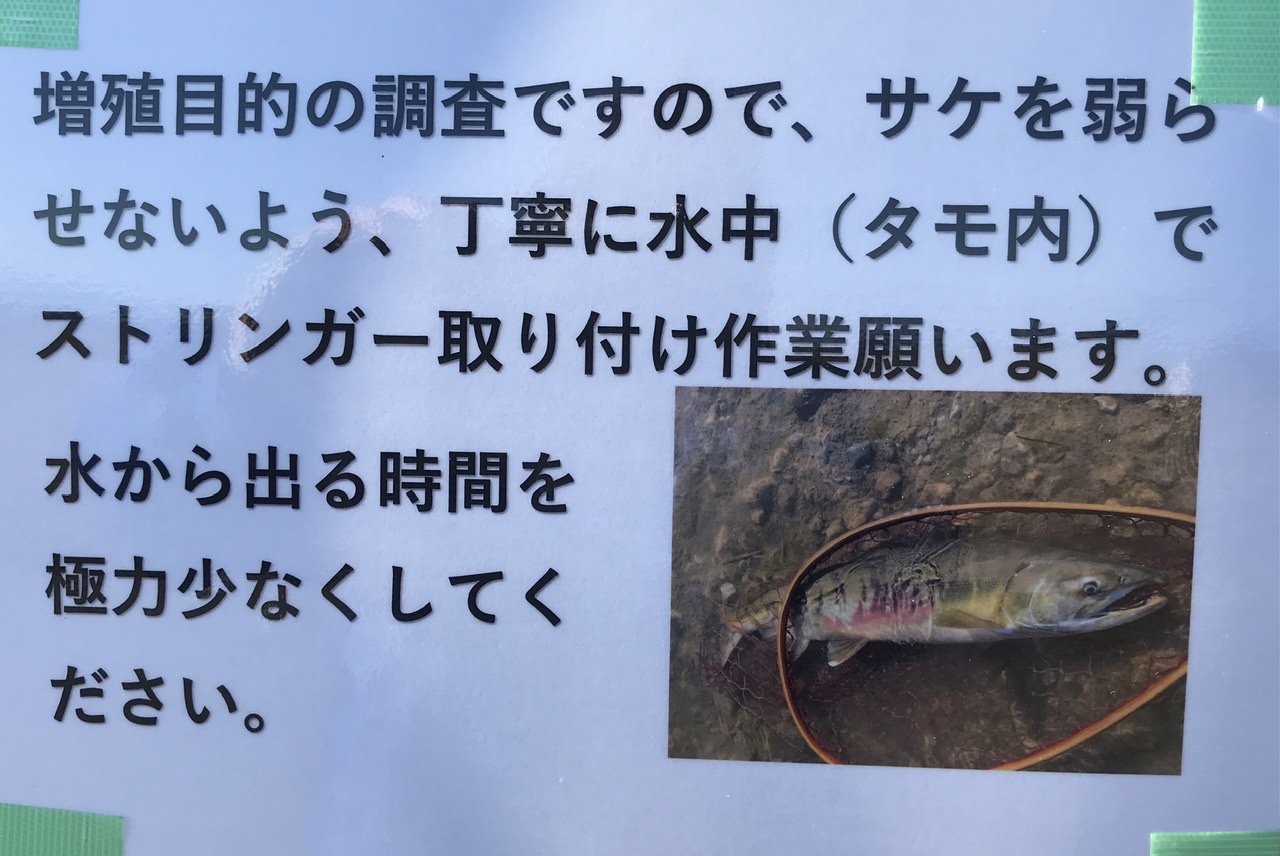 増殖目的の調査ですので、サケを弱ら
せないよう、丁寧に水中（タモ内）で
ストリンガー取り付け作業願います。
水から出る時間を
極力少なくしてく
ださい。